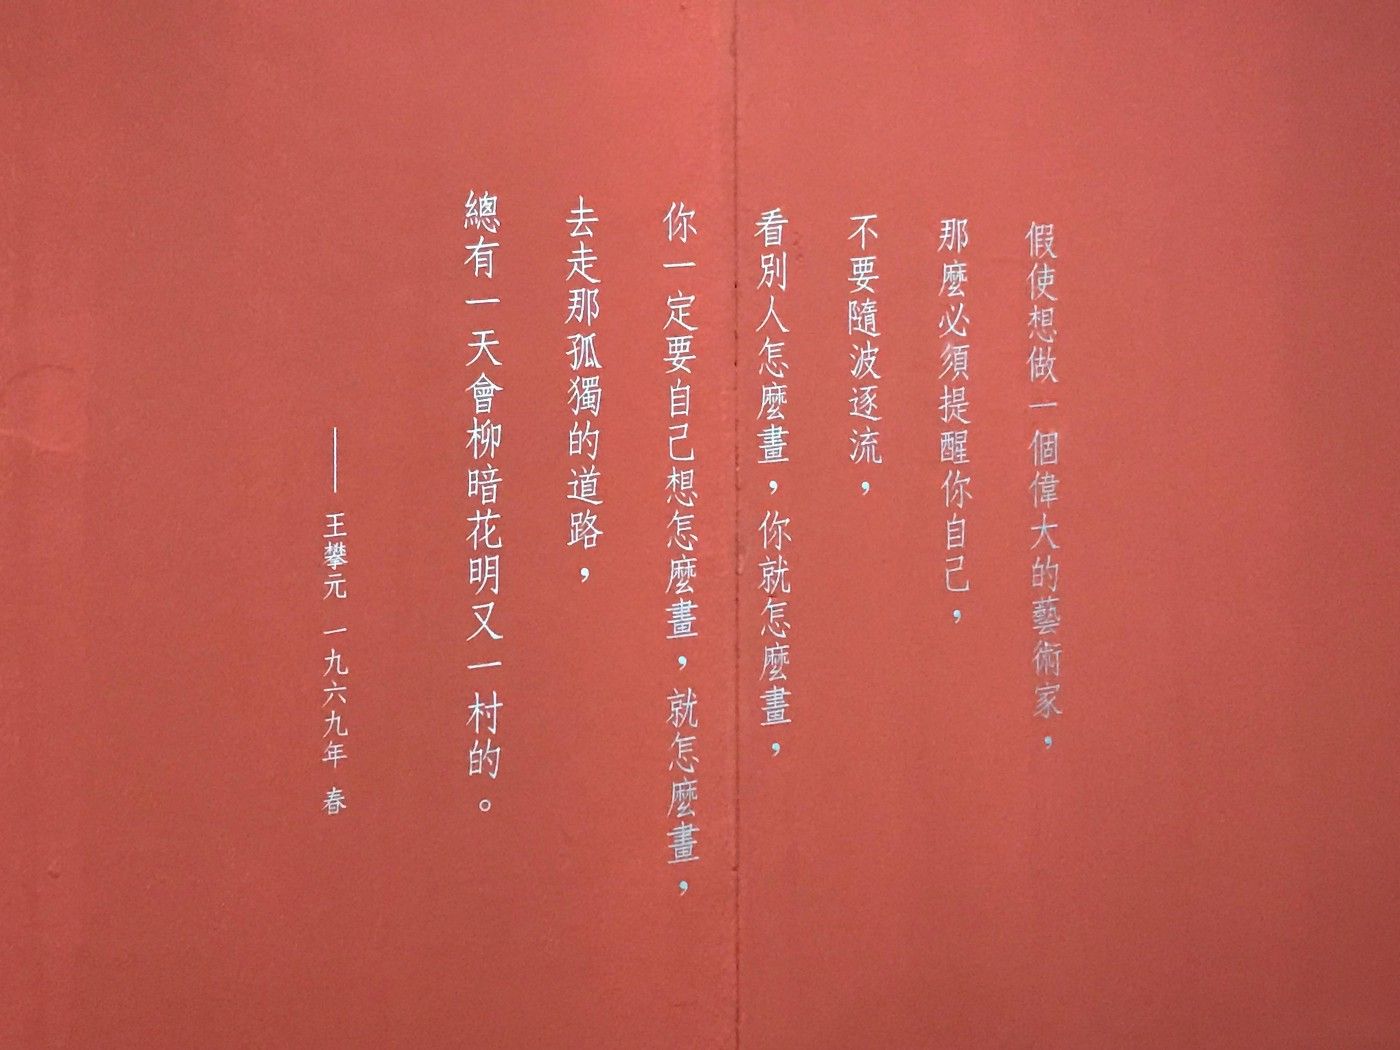 假使想做一個偉大的藝術家，
那麼必須提醒你自己，
不要隨波逐流，
看別人怎麼畫，你就怎麼畫，
你一定要自己想怎麼畫，就怎麼畫，
去走那孤獨的道路，
總有一天會柳暗花明又一村的。
——王攀元 一九六九年 春